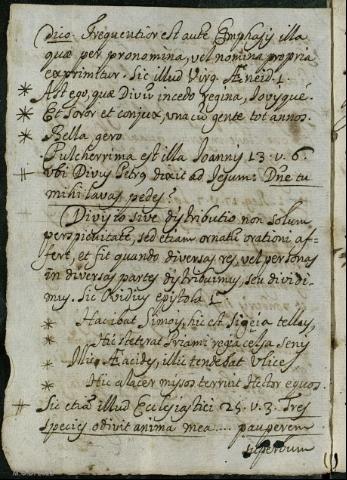 dico. Frequentior est aute Emphasis illa
quæ per pronomina, vel nomina propria
exprimitur. Sic illud Virg. Æneid. 1.
* Ast ego, quæ Divũ incedo regina, Jovisque
* Et soror et conjux, unacũ gente tot annos.
* Bella gero
Pulcherrima est illa Joannis 13. v. 6.
# vbi Divus Petrus dixit ad Jesum: Dñe tu
mihi lavas pedes?
Divisio sive distributio non solum
perspicuitatẽ, sed etiam ornatũ orationi af-
fert, et fit quando diversas res, vel personas
in diversas partes distribuimus, seu dividi-
mus. Sic Ovidius epistola 1.
* Hac ibat Simois, hic est Sigeia tellus,
* Hic steterat Priami regia celsa senis
* Illic Æacides, illic tendebat Vlices
* Hic alacer missos terruit Hector equos.
# Sic etiã illud Ecclesiastici 25. v. 3. Tres
species odivit anima mea .... pauperem
superbum